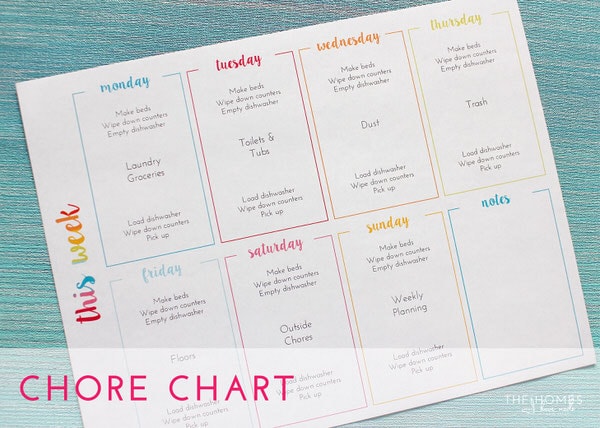 this week
monday
Make beds
Wipe down counters
Empty dishwasher
Laundry
Groceries
Load dishwasher
Wipe down counters
Pick up
tuesday
Make beds
Wipe down counters
Empty dishwasher
Toilets &
Tubs
Load dishwasher
Wipe down counters
Pick up
wednesday
Make beds
Wipe down counters
Empty dishwasher
Dust
Load dishwasher
Wipe down counters
Pick up
thursday
Make beds
Wipe down counters
Empty dishwasher
Trash
Load dishwasher
Wipe down counters
Pick up
friday
Make beds
Wipe down counters
Empty dishwasher
Floors
Load dishwasher
Wipe down counters
Pick up
saturday
Make beds
Wipe down counters
Empty dishwasher
Outside
Chores
Load dishwasher
Wipe down counters
Pick up
sunday
Make beds
Wipe down counters
Empty dishwasher
Weekly
Planning
Load dishwasher
Wipe down counters
Pick up
notes
CHORE CHART
THE HOMES
I have made